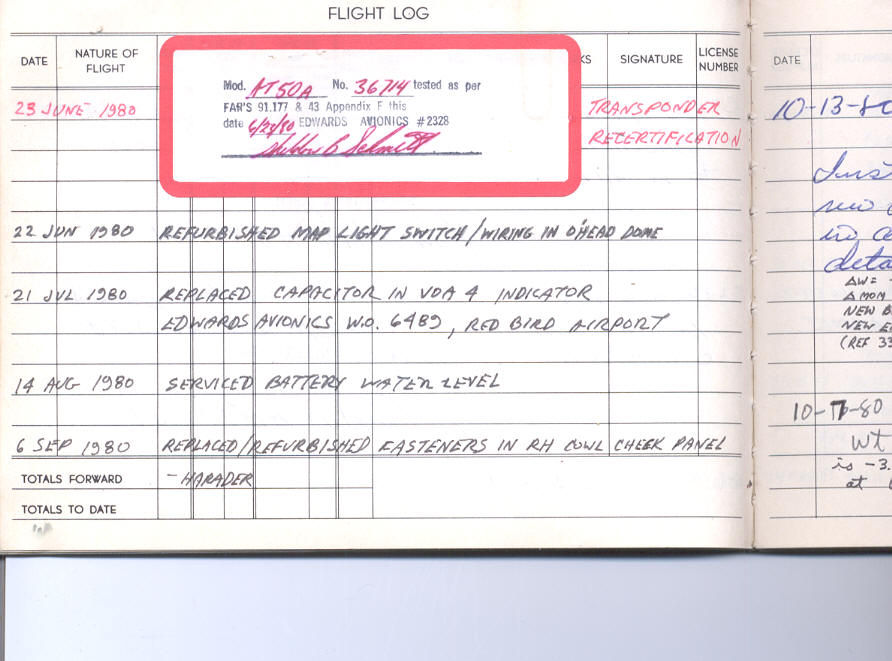 FLIGHT LOG
DATE NATURE OF FLIGHT KS SIGNATURE LICENSE NUMBER
23 JUNE 1980 TRANSPONDER
RECERTIFICATION
Mod. AT50A No. 36714 tested as per
FAR'S 91.177 & 43 Appendix F this
date 6/23/80 EDWARDS AVIONICS #2328
22 JUN 1980 REFURBISHED MAP LIGHT SWITCH/WIRING IN O'HEAD DOME
21 JUL 1980 REPLACED CAPACITOR IN VOA 4 INDICATOR
EDWARDS AVIONICS W.O. 6489, RED BIRD AIRPORT
14 AUG 1980 SERVICED BATTERY WATER LEVEL
6 SEP 1980 REPLACED/REFURBISHED FASTENERS IN RH COWL CHEEK PANEL
TOTALS FORWARD - HARADER
TOTALS TO DATE
DATE
10-13-80
Ins
new
in a
deta
ΔW= -
Δ MOM
NEW B
NEW E
(REF 33
10-7-80
Wt
is -3.
at